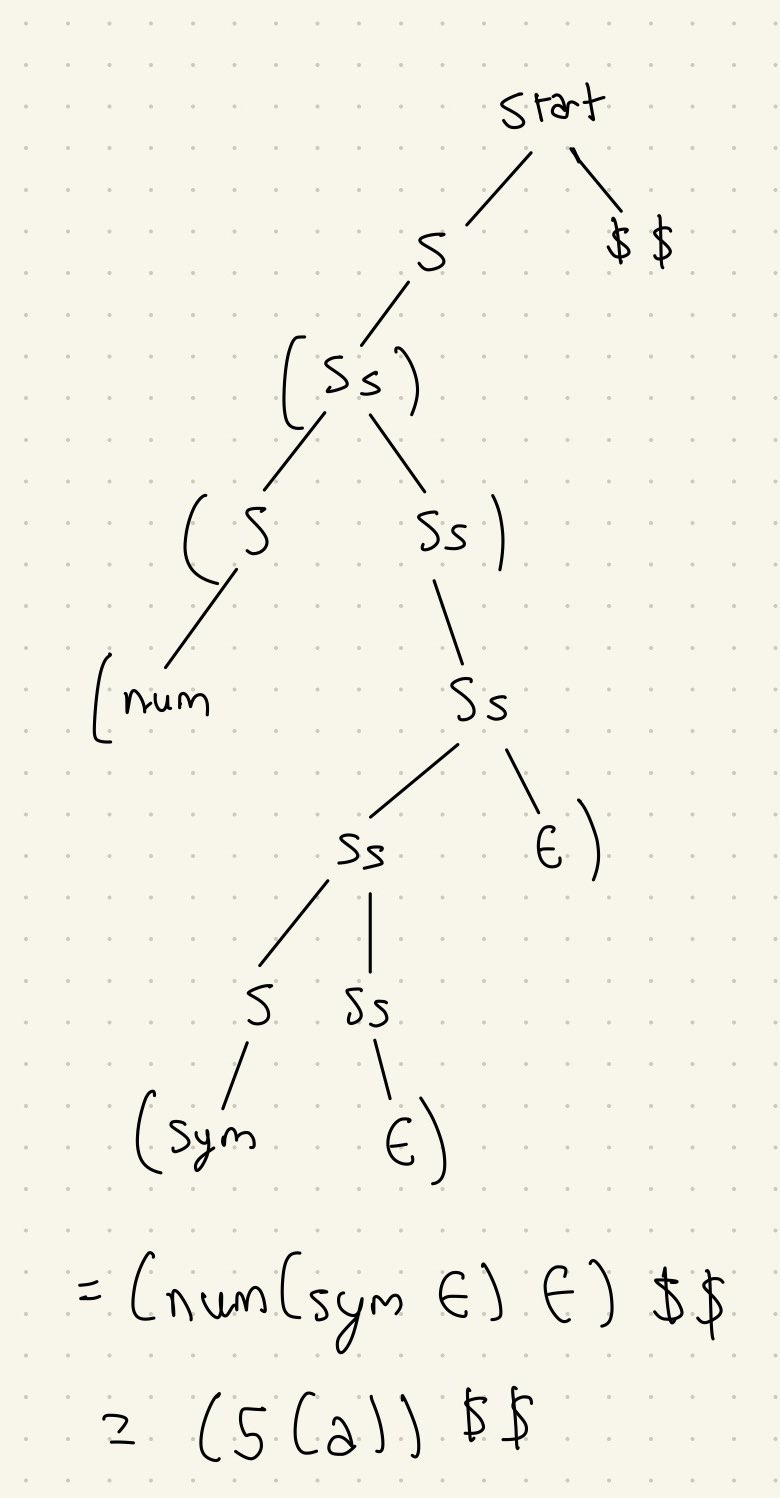 Start
S $$
(Ss)
(S Ss)
(num Ss
Ss ϵ)
S Ss
(sym ϵ)
= (num(sym ϵ) ϵ) $$
= (5(a)) $$